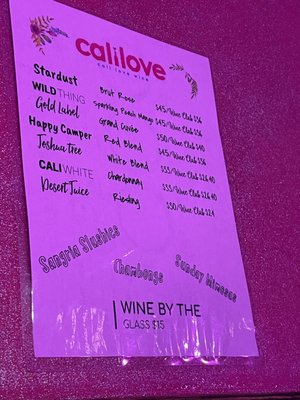 calilove
cali love wine
Stardust Brut Rose $45/Wine Club $36
WILD THING Sparkling Peach Mango $45/Wine Club $36
Gold Label Grand Cuvée $50/Wine Club $40
Happy Camper Red Blend $45/Wine Club $36
Joshua Tree White Blend
CALI WHITE Chardonnay
Desert Juice Riesling $30/Wine Club $24
Sangria Slushies
Chambongs
Sunday Mimosas
WINE BY THE
GLASS $15